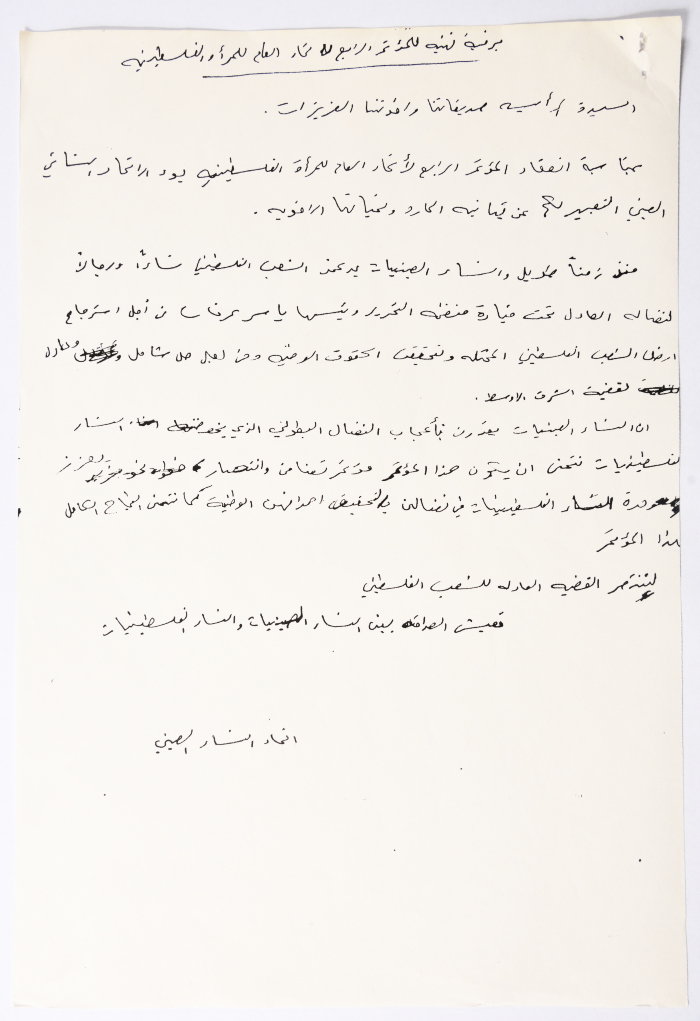 برقية تهنية للمؤتمر الرابع للاتحاد العام للمرأة الفلسطينية
السيدة الرأسية صديقاتنا واخوتنا العزيزات .
بمناسبة انعقاد المؤتمر الرابع لأتحاد العام للمرأة الفلسطينيه يود الاتحاد النسائي
الصيني التعبير لكم عن تهانيه الحاره وتمنياتها الاخويه .
منذ زمناً طويل والنساء الصينيات يدعمن الشعب الفلسطيني نساءاً ورجالاً
لنضاله العادل تحت قيادة منظمه التحرير ورئيسها ياسر عرفات من أجل استرجاع
ارض الشعب الفلسطيني المحتله وتحقيق الحقوق الوطنيه ومن اجل حل شامل وعادل
لقضية الشرق الاوسط .
ان النساء الصينيات يقدرن بأعجاب النضال البطولي الذي النساء
الفلسطينيات نتمنى ان يكون هذا المؤتمر مؤتمر تضامن وانتصار لعزيز
وحدة النساء الفلسطينيات في نضالهن لتحقيق اهدافهن الوطنية كما نتمنى النجاح الكامل
لهذا المؤتمر
لتنتصر القضيه العادله للشعب الفلسطيني
تعيش الصداقه بين النساء الصينيات والنساء الفلسطينيات
اتحاد النساء الصيني